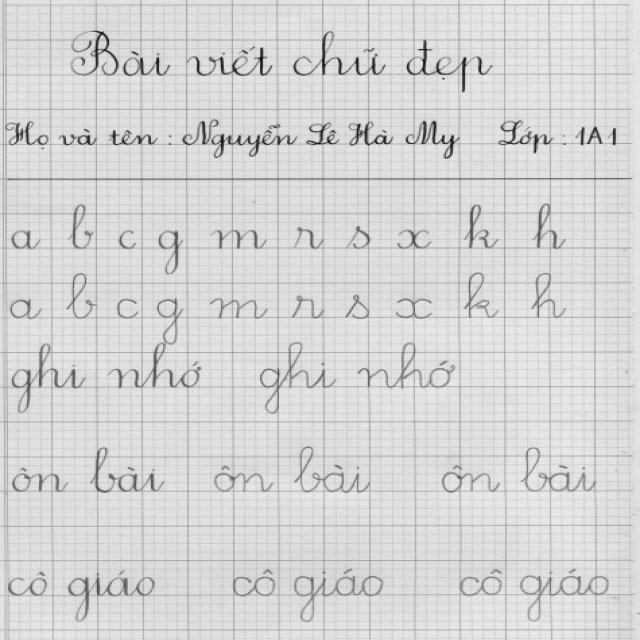 Bài viết chữ đẹp
Họ và tên : Nguyễn Lê Hà My Lớp : 1A1
a b c g m r s x k h
a b c g m r s x k h
ghi nhớ ghi nhớ
ôn bài ôn bài ôn bài
cô giáo cô giáo cô giáo